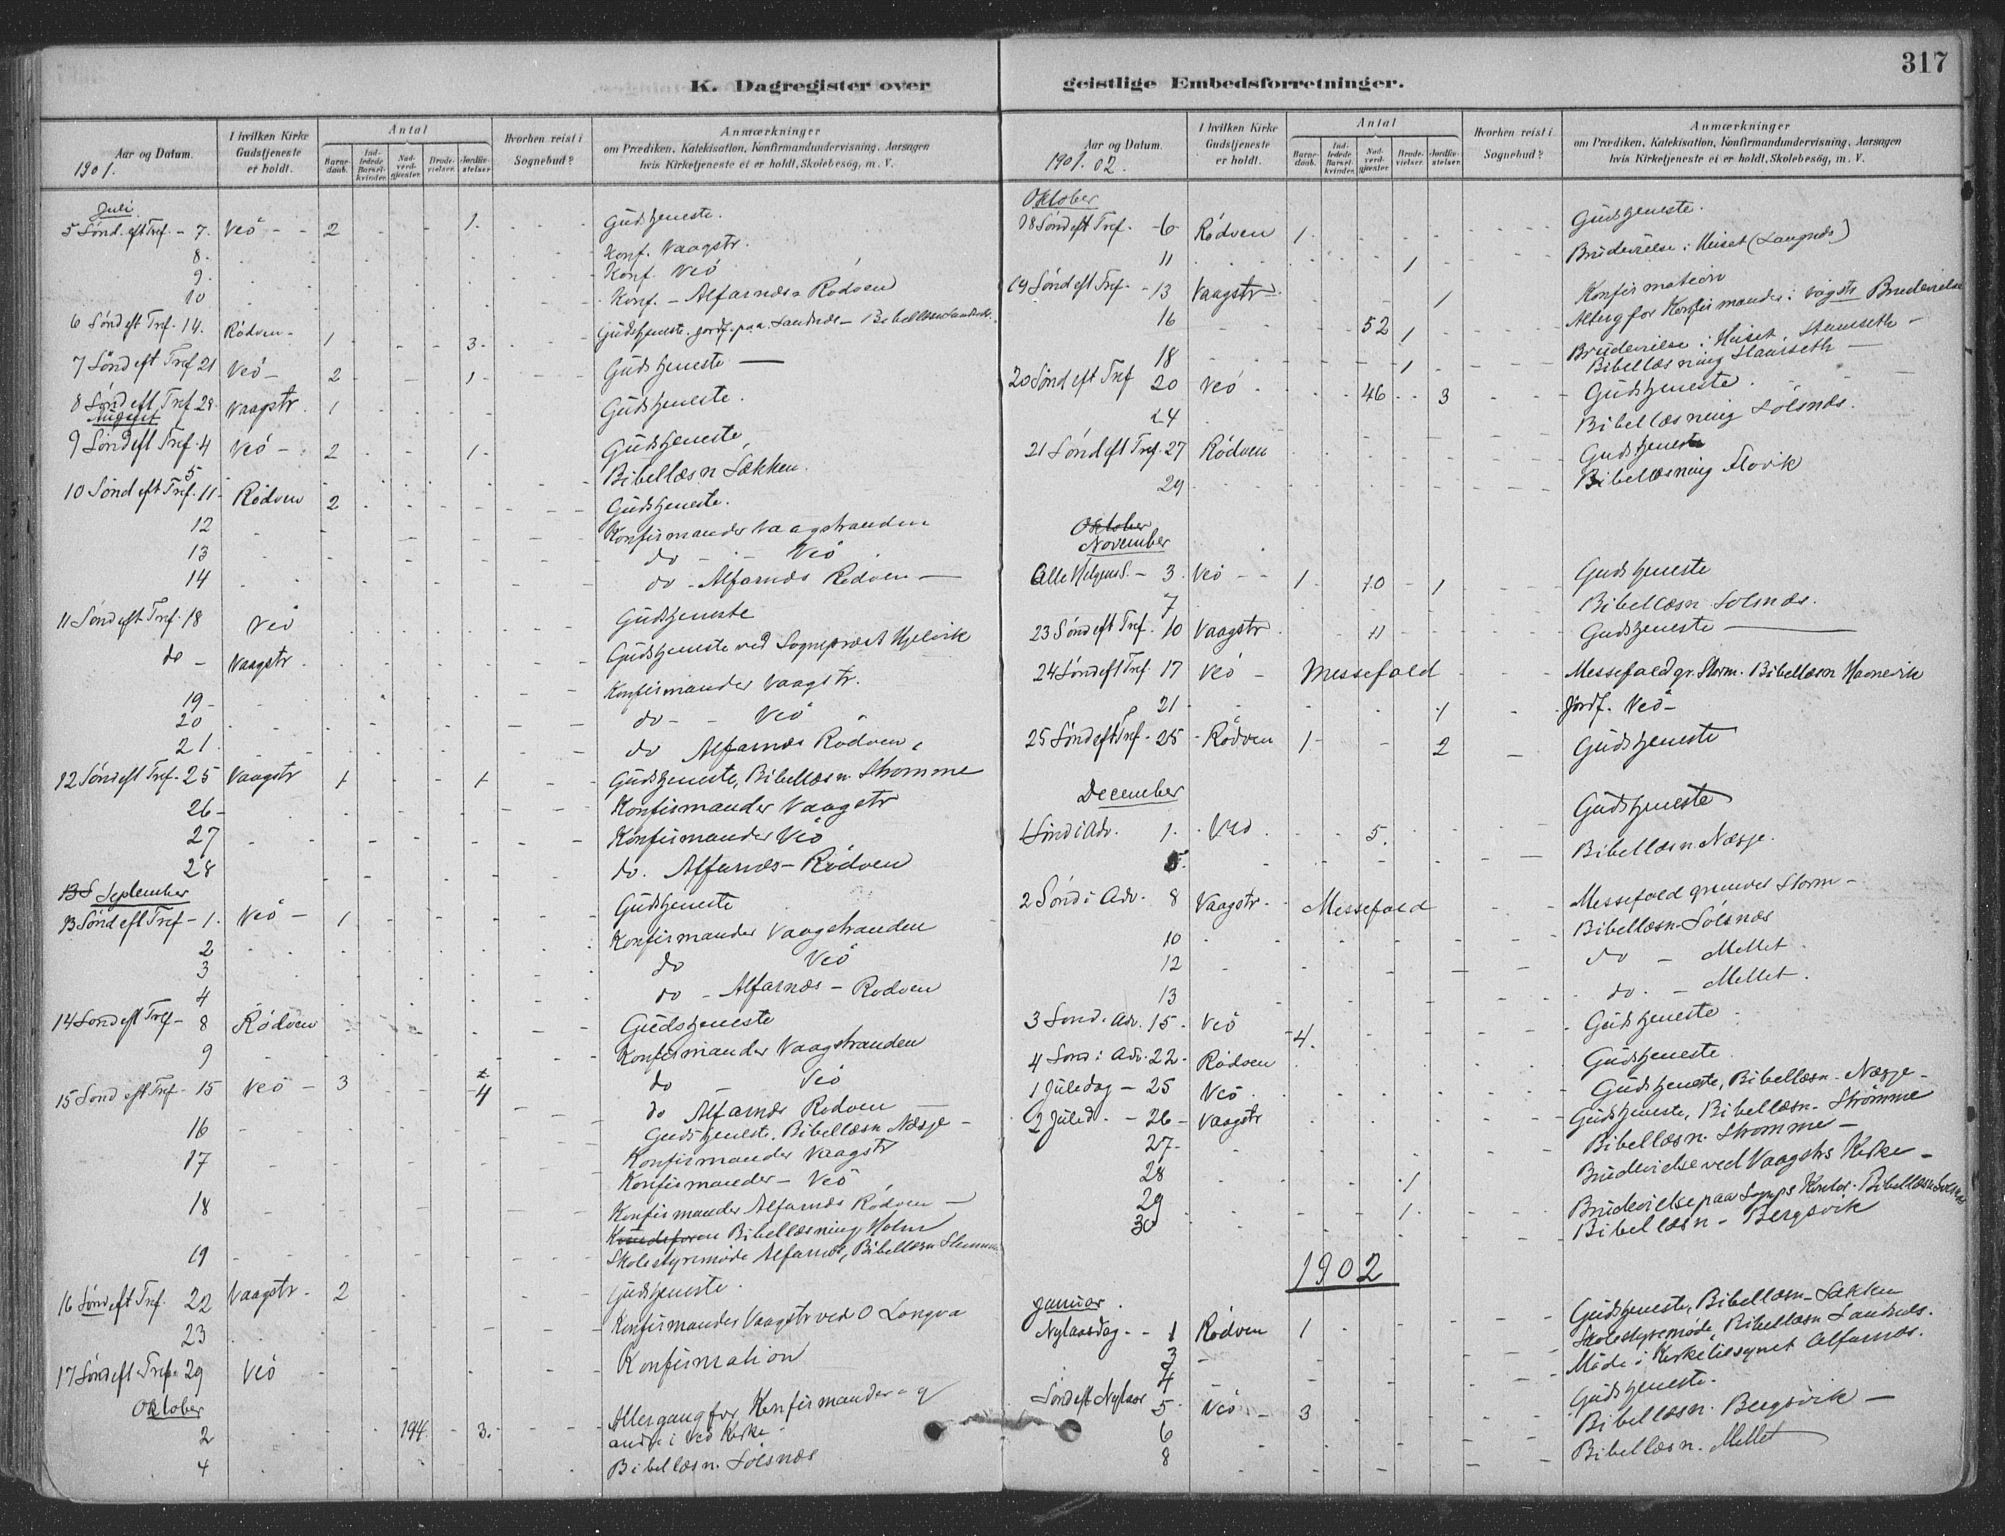 317
K. Dagregister over
geistlige Embedsforretninger.
Aar og Datum.
1901.
I hvilken Kirke Gudstjeneste er holdt.
Antal
Barne-daab.
Ind-ledede Barsel-kvinder.
Nad-verd-gjester.
Brude-vielser.
Jordfæ-stelser.
Hvorhen reist i Sognebud?
Anmærkninger
om Prædiken, Katekisation, Konfirmandundervisning, Aarsagen
hvis Kirketjeneste ei er holdt, Skolebesøg, m. V.
Juli
5 Sönd. eft Tref. - 7. Veö - - 2 1. Gudstjeneste.
8. Konf. Vaagstr.
9. Konf. Veö
10 Konf. - Alfarnæs Rödven
6 Sönd eft Tref. 14. Rödven - 1 3. Gudstjeneste. jordf. paa Sandnæs - Bibellæsn
7 Sönd eft Tref 21 Veö - 2 1 Gudstjeneste
8 Sönd eft Tref 28 Vaagstr. 1 Gudstjeneste.
August
9 Sönd eft Tref. 4 Veö - 2 1. Gudstjeneste
5 Bibellæsn Sækken.
10 Sönd eft Tref. 11. Rödven 2 Gudstjeneste.
12 Konfirmander Vaagstranden
13 do - - Veö
14 do - Alfarnæs Rödven -
11 Sönd eft Tref. 18 Veö Gudstjeneste
do - Vaagstr Gudstjeneste ved Sognepræst Hjelvik
19 - Konfirmander Vaagstr.
20 do - - Veö
21. do Alfarnæs Rödven
12 Sönd eft Tref. 25 Vaagstr 1 1 Gudstjeneste, Bibellæsn. Strömme
26 - Konfirmander Vaagstr
27 Konfirmander Veö
28 do. Alfarnæs - Rödven
September
13 Sönd eft Tref - 1. Veö - 1 Gudstjeneste
2 Konfirmander Vaagstranden
3 do Veö
4 do - Alfarnæs - Rödven
14 Sönd eft Tref - 8 Rödven Gudstjeneste
9 Konfirmander Vaagstranden
do - Veö
15 Sönd eft Tref - 15 Veö - 3 4 do Alfarnæs Rödven -
Gudstjeneste. Bibellæsn Næsje -
16 Konfirmander Vaagstr
17 Konfirmander - Veö
18 Konfirmander Alfarnæs Rödven -
Bibellæsning Holm
19 Skolestyremöde Alfarnæs, Bibellæsn
16 Sönd eft Tref. 22 Vaagstr. 2 Gudstjeneste.
23 Konfirmander Vaagstr ved O Longva
17 Sönd eft Tref. 29 Veö Konfirmation
Oktober
2 194 3. Altergang for Konfirmander og
andre i Veö Kirke -
4 Bibellæsn. Sölsnæs
Aar og Datum.
1901. 02.
I hvilken Kirke Gudstjeneste er holdt.
Antal
Barne-daab.
Ind-ledede Barsel-kvinder.
Nad-verd-gjester.
Brude-vielser.
Jordfæ-stelser.
Hvorhen reist i Sognebud?
Anmærkninger
om Prædiken, Katekisation, Konfirmandundervisning, Aarsagen
hvis Kirketjeneste ei er holdt, Skolebesøg, m. V.
Oktober
18 Sönd eft Tref. - 6 Rödven 1. Gudstjeneste.
11 1 Brudevielse i Huset
19 Sönd eft Tref. - 13 Vaagstr 1 Konfirmation
16 52 1 Alterg for Konfirmander i Vågstr Brudevielse
18 1 Brudevielse i Huset.
Bibellæsning
20 Sönd eft Tref 20 Veö 46 3 Gudstjeneste.
24 Bibellæsning Sölsnæs.
21 Sönd eft Tref. 27 Rödven Gudstjeneste
29 Bibellæsning Flovik
Oktober
November
Alle Helgens S. - 3. Veö - - 1 10 1 Gudstjeneste
7 Bibellæsn. Sölsnæs.
23 Sönd eft Tref. 10 Vaagstr 11 Gudstjeneste
24 Sönd eft Tref. 17 Veö - Messefald Messefald gr. Storm. Bibellæsn
21 1 Jordf. Veö -
25 Sönd eft Tref. 25 Rödven 1 - 2 Gudstjeneste
December
1 Sönd i Adv. 1. Veö 5. Gudstjeneste
5. Bibellæsn. Næsje.
2 Sönd i Adv. 8 Vaagstr. Messefald Messefald grundet Storm -
10 Bibellæsn. Sölsnæs
12 do - Mellet
13 do. - Mellet.
3 Sönd. Adv. 15. Veö 4. Gudstjeneste
4 Sönd i Adv. 22. Rödven Gudstjeneste.
1 Juledag - 25 Veö Gudstjeneste, Bibellæsn. Næsje -
2 Juled. - 26 - Vaagstr Gudstjeneste, Bibellæsn. Strömme
27 - Bibellæsn. Strömme -
28 1 Brudevielse ved Vaagstrs Kirke -
29 1. Brudevielse paa Sognps Kontor. Bibellæsn
30 Bibellæsn - Bergsvik
1902
Januar.
Nytaarsdag - 1 Rödven 1 Gudstjeneste, Bibellæsn - Sækken
3 Skolestyremöde, Bibellæsn Sandnæs.
4 Möde i Kirketilsynet Alfarnæs.
Sönd eft Nytaar 5. Veö - 3 Gudstjeneste.
6 Bibellæsn. Bergsvik -
8 Bibellæsn. Mellet